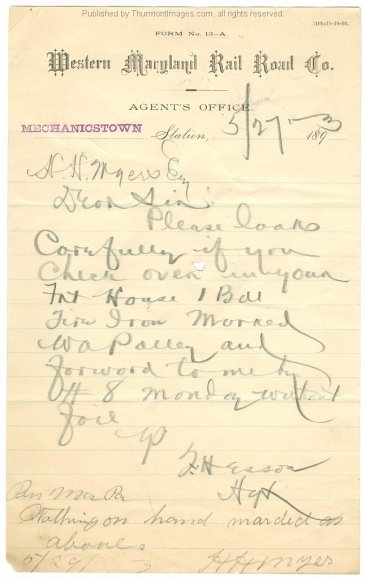 Published by ThurmontImages.com, all rights reserved.
FORM No. 13-A.
Western Maryland Rail Road Co.
AGENT'S OFFICE,
MECHANICSTOWN Station, 5/27 1893
H. H. Myers Esq
Dear Sir:
Please look
Carefully if you
Check over in your
Frt House 1 Bdl
Tire Iron Marked
and
forward to me by
# 8 Monday without
fail
Pen Mar Pa
Nothing on hand marked as
above.
5/29/ 3 H H Myers